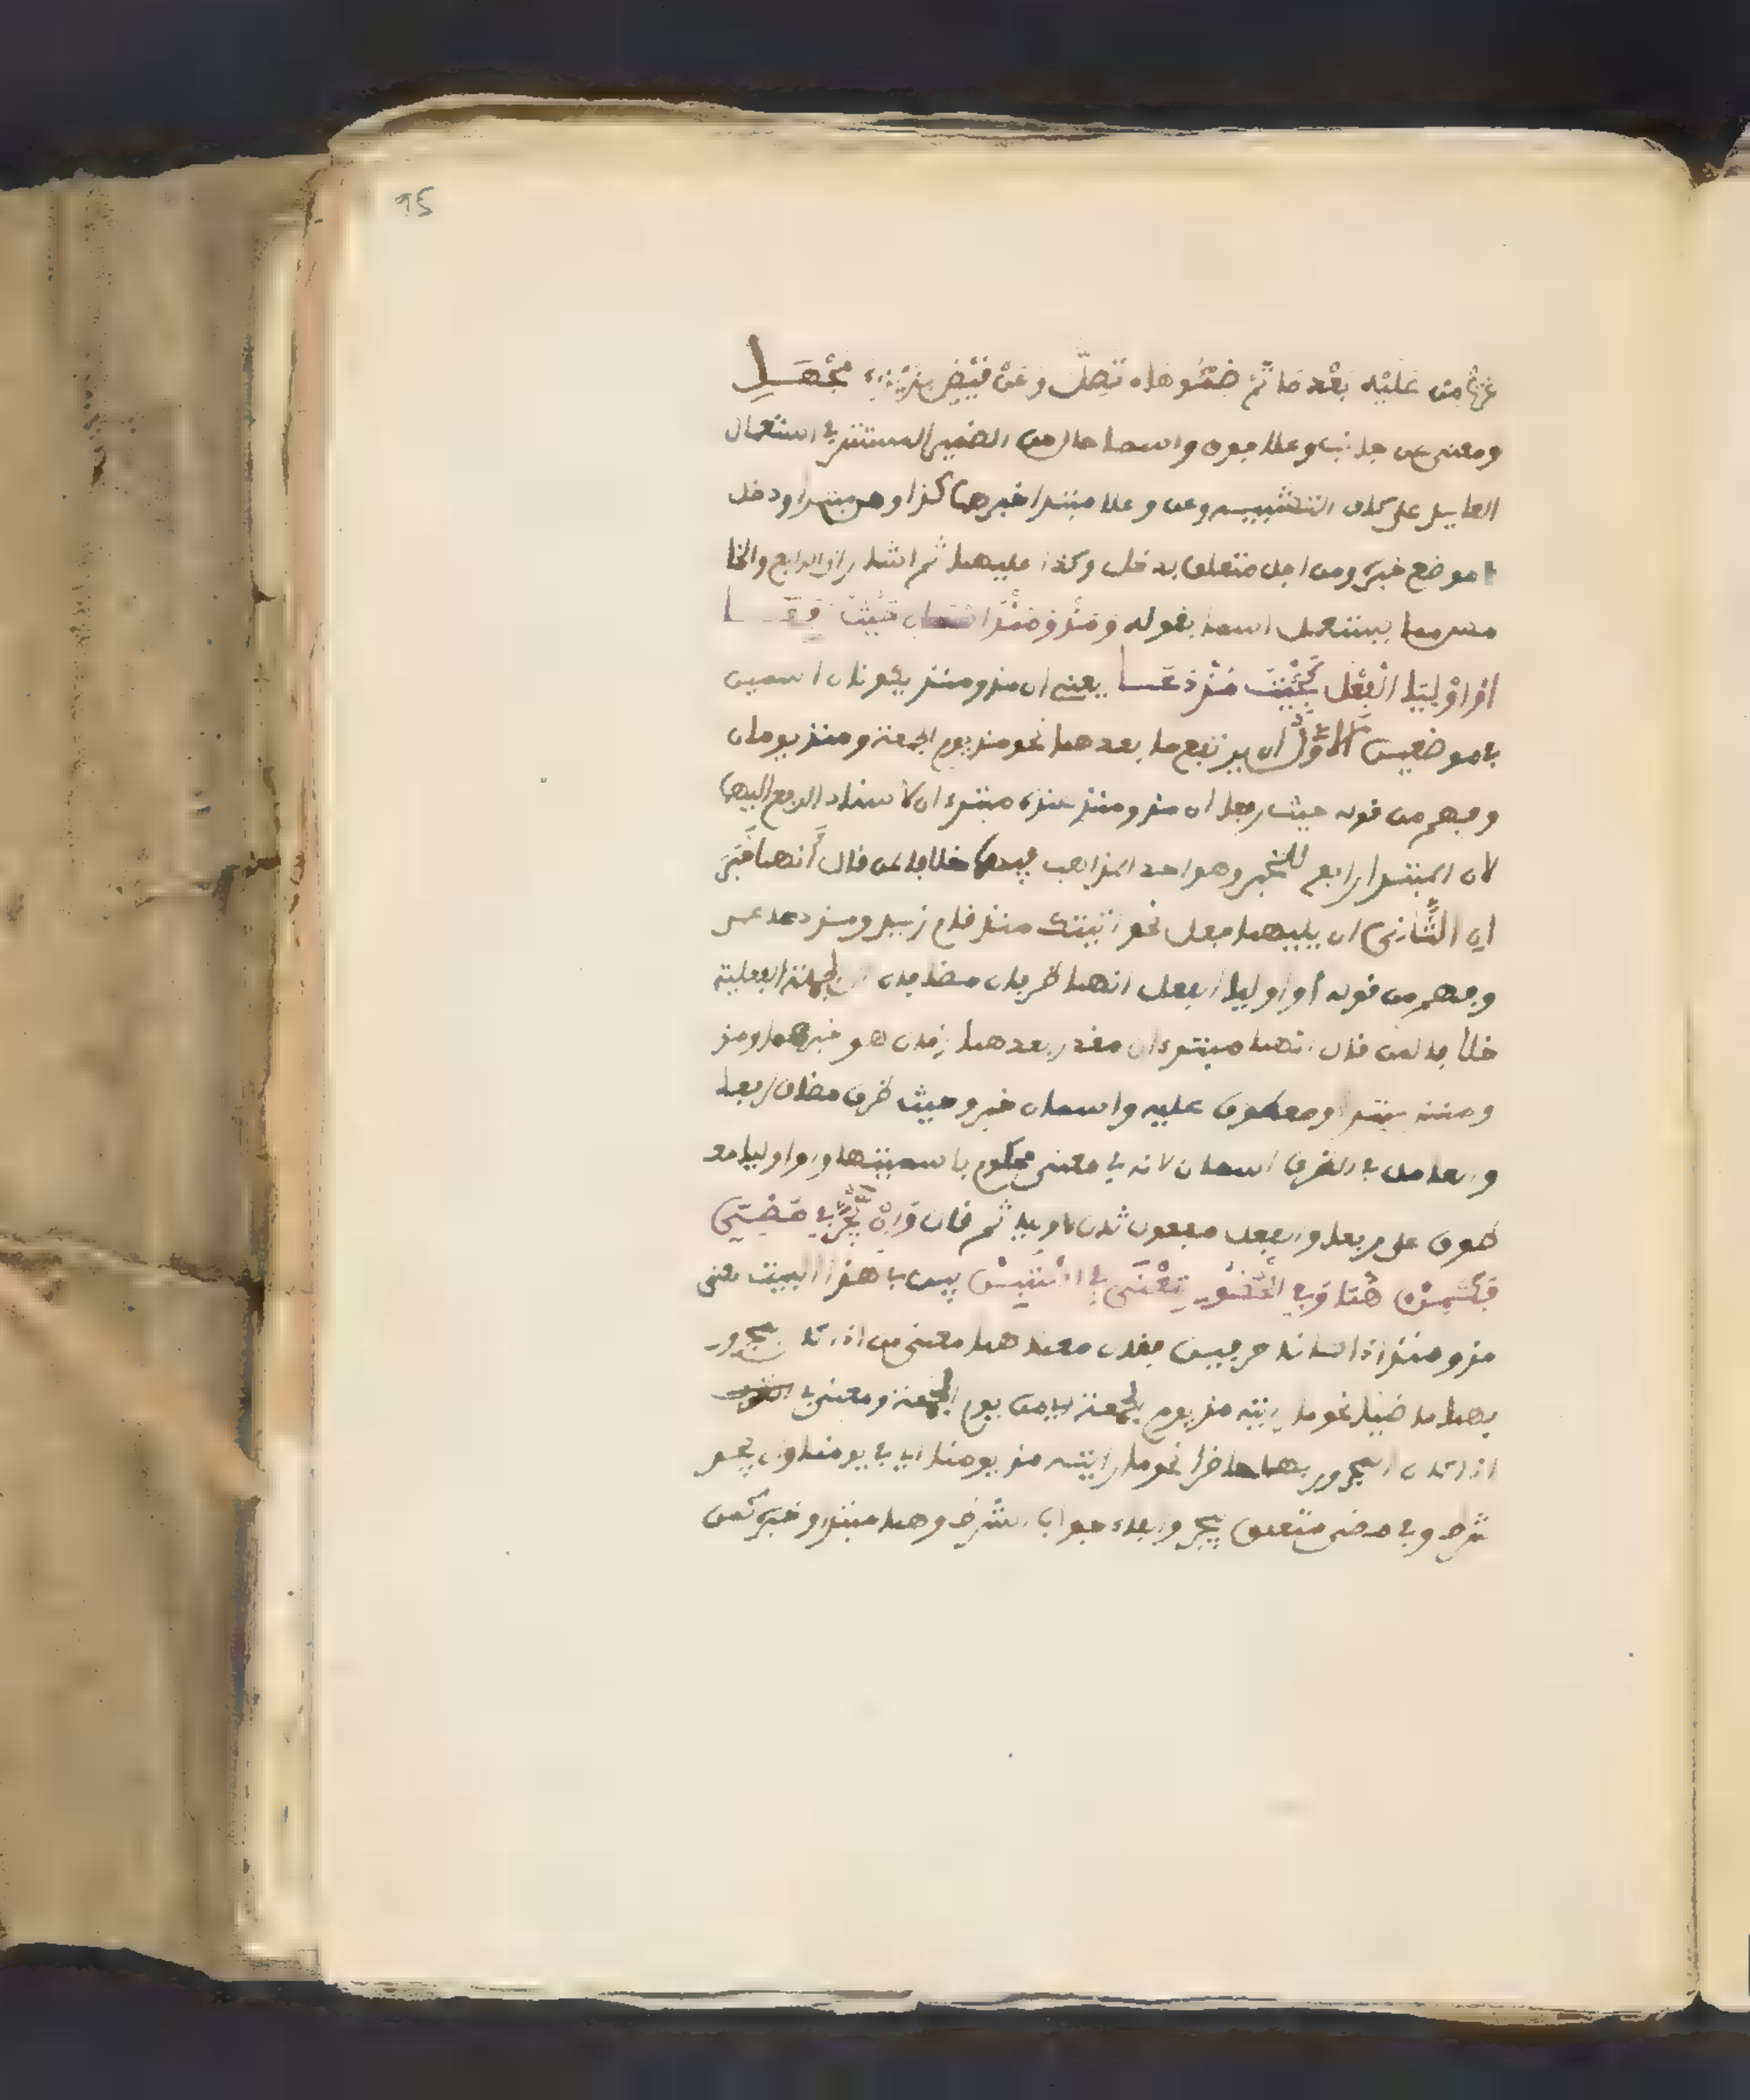 95
غدت من عليه بعد ما تم ضمؤها تصل وعن قيض بزيزاء مجهل
ومعنى عن جانب وعلا فوق واسما حال من الضمير المستتر في استعمل
العايد على كاف التشبيه وعن وعلا مبتدا خبرهما كذا ومن مبتدا ودخل
موضع خبره ومن اجل متعلق بدخل وكذا عليهما ثم اشار الى الرابع والخا
مس مما يستعمل اسما بقوله ومذ ومنذ اسمان حيث رفعا
او اوليا الفعل كجئت مذ دعا يعني ان مذ ومنذ يكونان اسمين
في موضعين الاول ان يرتفع ما بعدهما نحو مذ يوم الجمعة ومنذ يومان
وفهم من قوله حيث رفعا ان مذ ومنذ عنده مبتدءان لاسناد الرفع اليهما
لان المبتدا رافع للخبر وهو احد المذاهب فيهما خلافا لمن قال انهما خبر
ان الثاني ان يليهما فعل نحو اتيتك منذ قام زيد ومذ دعا عمر
وفهم من قوله او اوليا الفعل انهما ظرفان مضافان الى الجملة الفعلية
خلافا لمن قال انهما مبتدءان مقدر بعدهما زمان هو خبرهما ومذ
ومنذ مبتدا ومعطوف عليه واسمان خبر وحيث ظرف مضاف لرفعا
والعامل في الظرف اسمان لانه في معنى محكوم باسميتهما واو اوليا مع
طوف على رفعا والفعل مفعول ثان لاوليا ثم قال وان يجرا في مضي
فكمن هما وفي الحضور معنى في استبن بين في هذا البيت معنى
مذ ومنذ اذا كانا حرفين فقال معناهما معنى من اذا كان المجرور
بهما ماضيا نحو ما رايته مذ يوم الجمعة اي من يوم الجمعة ومعنى في
اذا كان المجرور بهما حاضرا نحو ما رايته مذ يومنا اي في يومنا وان يجر
شرط وفي مضي متعلق بيجر والفاء جواب الشرط وهما مبتدا وخبره كمن